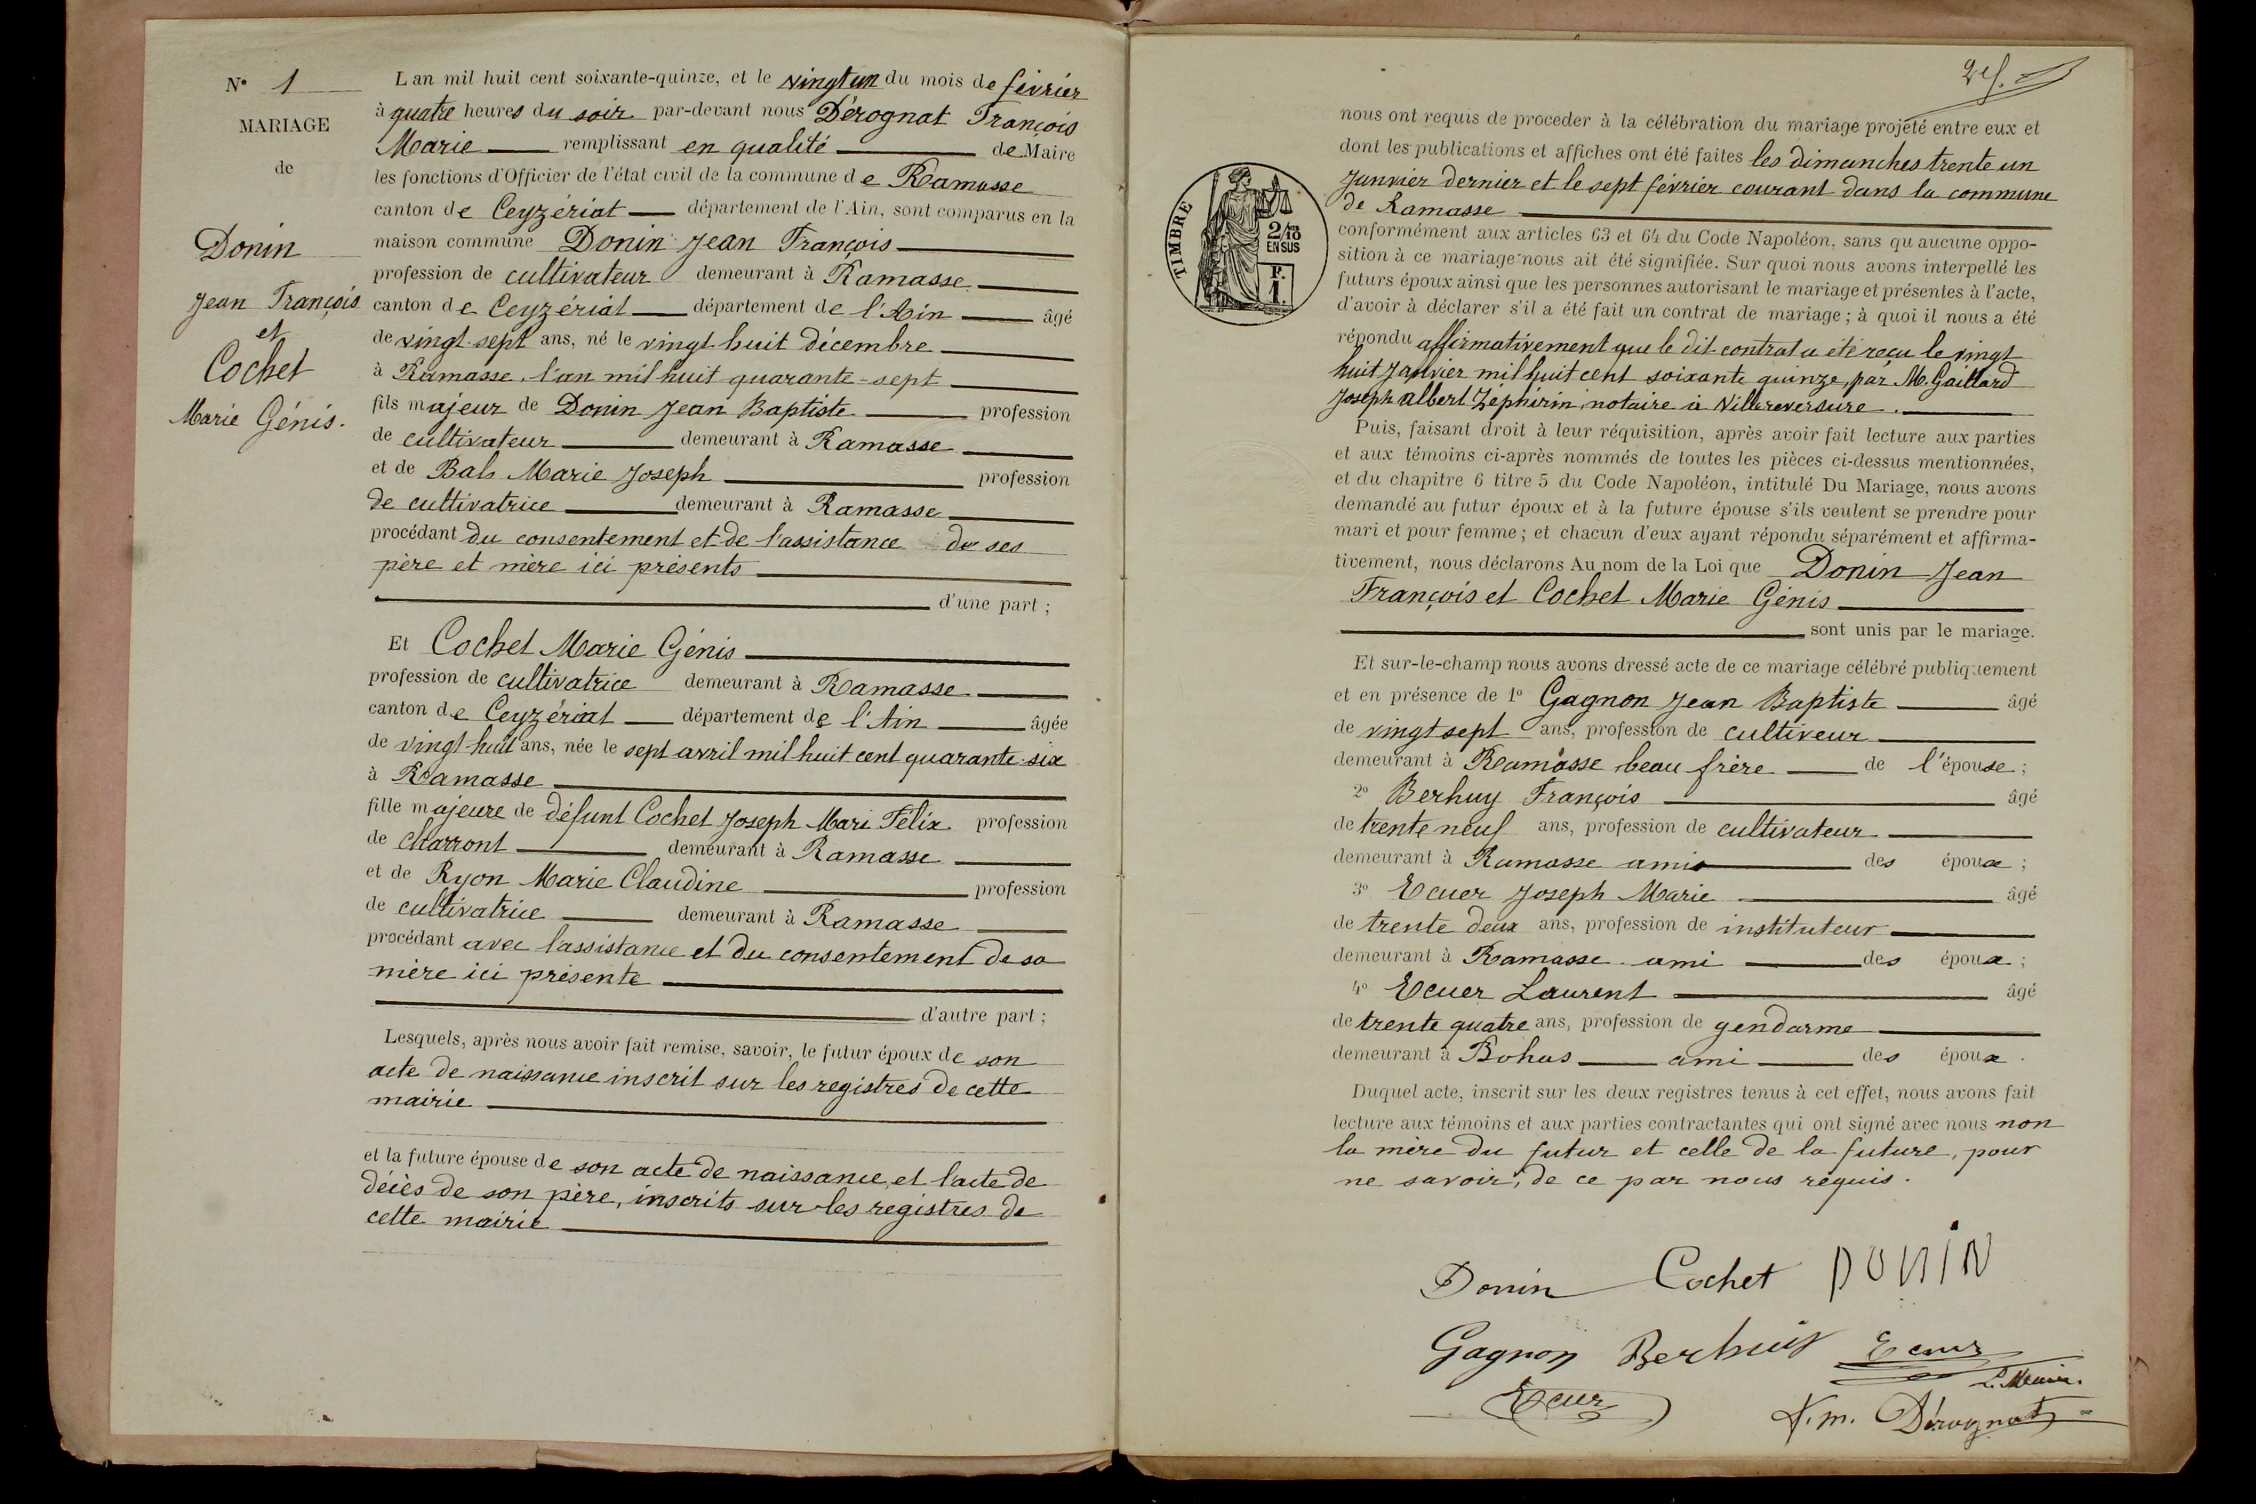 N° 1
MARIAGE
de
Donin
Jean François
et
Cochet
Marie Génis.
L'an mil huit cent soixante-quinze, et le vingt un du mois de février
à quatre heures du soir par-devant nous Dérognat François
Marie remplissant en qualité de Maire
les fonctions d'Officier de l'état civil de la commune de Ramasse
canton de Ceyzériat département de l'Ain, sont comparus en la
maison commune Donin Jean François
profession de cultivateur demeurant à Ramasse
canton de Ceyzériat département de l'Ain âgé
de vingt-sept ans, né le vingt huit décembre
à Ramasse, l'an mil huit quarante-sept
fils majeur de Donin Jean Baptiste profession
de cultivateur demeurant à Ramasse
et de Bals Marie Joseph profession
de cultivatrice demeurant à Ramasse
procédant du consentement et de l'assistance de ses
père et mère ici présents
d'une part ;
Et Cochet Marie Génis
profession de cultivatrice demeurant à Ramasse
canton de Ceyzériat département de l'Ain âgée
de vingt-huit ans, née le sept avril mil huit cent quarante-six
à Ramasse
fille majeure de défunt Cochet Joseph Mari Félix profession
de charront demeurant à Ramasse
et de Ryon Marie Claudine profession
de cultivatrice demeurant à Ramasse
procédant avec l'assistance et du consentement de sa
mère ici présente
d'autre part ;
Lesquels, après nous avoir fait remise, savoir, le futur époux de son
acte de naissance inscrit sur les registres de cette
mairie
et la future épouse de son acte de naissance, et l'acte de
décès de son père, inscrits sur les registres de
cette mairie
TIMBRE
2/10
EN SUS
nous ont requis de proceder à la célébration du mariage projeté entre eux et
dont les publications et affiches ont été faites les dimanches trente un
Janvier dernier et le sept février courant dans la commune
de Ramasse
conformément aux articles 63 et 64 du Code Napoléon, sans qu'aucune oppo-
sition à ce mariage nous ait été signifiée. Sur quoi nous avons interpellé les
futurs époux ainsi que les personnes autorisant le mariage et présentes à l'acte,
d'avoir à déclarer s'il a été fait un contrat de mariage ; à quoi il nous a été
répondu affirmativement que le dit contrat a été reçu le vingt
huit Janvier mil huit cent soixante quinze, par M. Gaillard
Joseph albert Zéphirin, notaire à Villereversure.
Puis, faisant droit à leur réquisition, après avoir fait lecture aux parties
et aux témoins ci-après nommés de toutes les pièces ci-dessus mentionnées,
et du chapitre 6 titre 5 du Code Napoléon, intitulé Du Mariage, nous avons
demandé au futur époux et à la future épouse s'ils veulent se prendre pour
mari et pour femme ; et chacun d'eux ayant répondu séparément et affirma-
tivement, nous déclarons Au nom de la Loi que Donin Jean
François et Cochet Marie Génis
sont unis par le mariage.
Et sur-le-champ nous avons dressé acte de ce mariage célébré publiquement
et en présence de 1° Gagnon Jean Baptiste âgé
de vingt sept ans, profession de cultiveur
demeurant à Ramasse beau frère de l'épouse ;
2° Berhuy François âgé
de trente neuf ans, profession de cultivateur
demeurant à Ramasse ami des époux ;
3° Ecuer Joseph Marie âgé
de trente deux ans, profession de instituteur
demeurant à Ramasse ami des époux ;
4° Ecuer Laurent âgé
de trente quatre ans, profession de gendarme
demeurant à Bohas ami des époux.
Duquel acte, inscrit sur les deux registres tenus à cet effet, nous avons fait
lecture aux témoins et aux parties contractantes qui ont signé avec nous non
la mère du futur et celle de la future, pour
ne savoir, de ce par nous réquis.
Donin Cochet DONIN
Gagnon Berhuis Ecuer
Ecuer
F. m. Dérognat